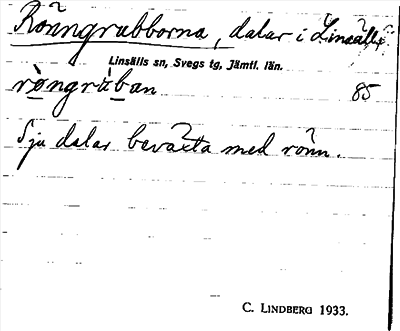 Rönngrubborna, dalar i Linsälls
Linsälls sn, Svegs tg, Jämtl. län.
ròngrùban 85
Sju dalar beväxta med rönn.
C. LINDBERG 1933.